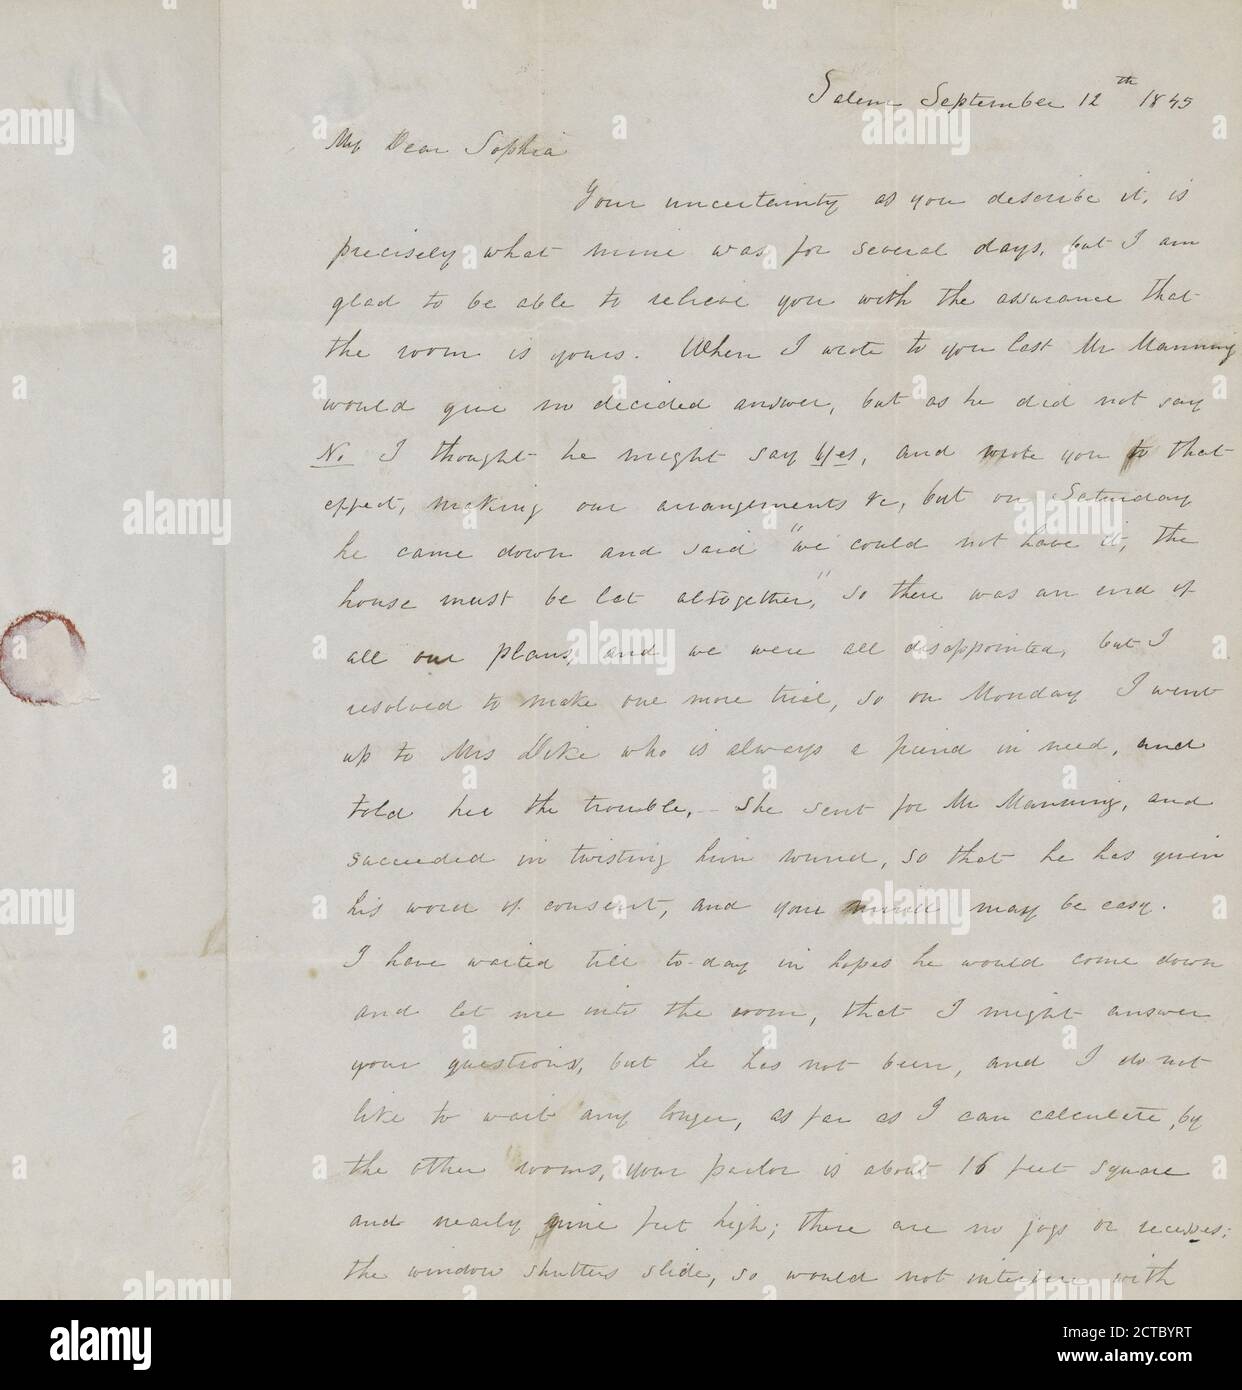 Salem September 12th 1845
My Dear Sophia
Your uncertainty as you describe it, is
precisely what mine was for several days, but I am
glad to be able to relieve you with the assurance that
the room is yours. When I wrote to you last Mr Manning
would give no decided answer, but as he did not say
No I thought he might say Yes, and wrote you to that
effect, making our arrangements &c, but on Saturday
he came down and said "we could not have it, the
house must be let altogether," so there was an end of
all our plans, and we were all disappointed, but I
resolved to make one more trial, so on Monday I went
up to Mrs Dike who is always a friend in need, and
told her the trouble, - She sent for Mr Manning, and
succeeded in twisting him round, so that he has given
his word of consent, and your mind may be easy.
I have waited till to-day in hopes he would come down
and let me into the room, that I might answer
your questions, but he has not been, and I do not
like to wait any longer, as far as I can calculate, by
the other rooms, your parlor is about 16 feet square
and nearly nine feet high; there are no jogs or recesses;
the window shutters slide, so would not interfere with
alamy
a
alamy
Image ID: 2CTBYRT
www.alamy.com